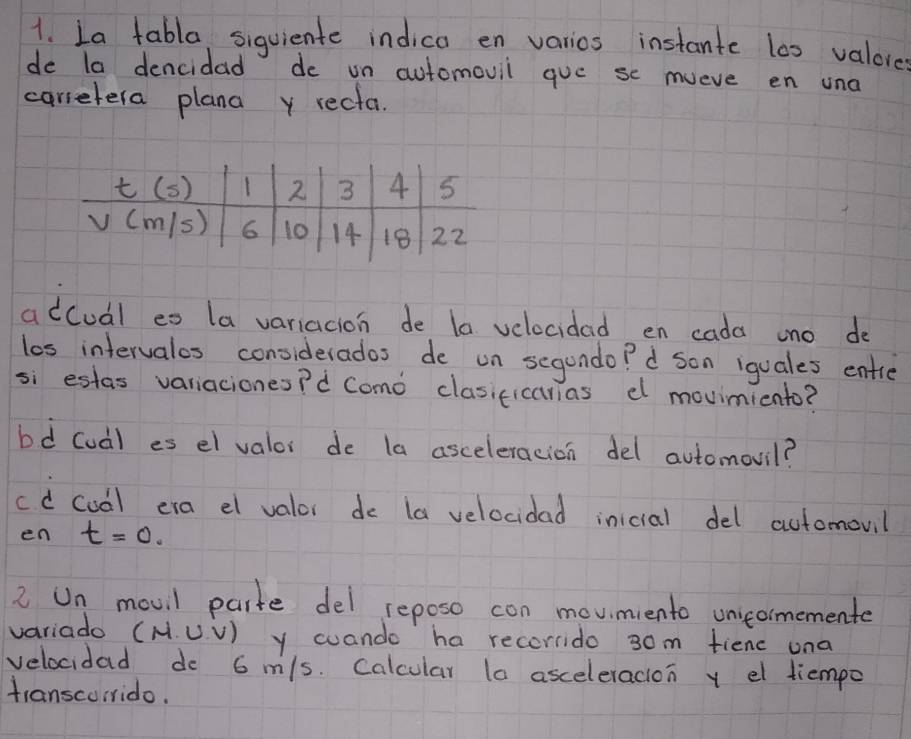 1. La tabla siguiente indica en varios instante los valores
de la dencidad de un automovil que se mueve en una
carretera plana y recta.
t (s) | 1 | 2 | 3 | 4 | 5
v (m/s) | 6 | 10 | 14 | 18 | 22
a ¿Cuál es la variación de la velocidad en cada uno de
los intervalos considerados de un segundo? ¿ son iguales entre
si estas variaciones? ¿ Comó clasificarias el movimiento?
b ¿ Cuál es el valor de la asceleración del automovil?
c. ¿ Cuál era el valor de la velocidad inicial del automovil
en t = 0.
2 Un movil parte del reposo con movimiento uniformemente
variado (M.U.V) y cuando ha recorrido 30 m tiene una
velocidad de 6 m/s. Calcular la asceleración y el tiempo
transcurrido.